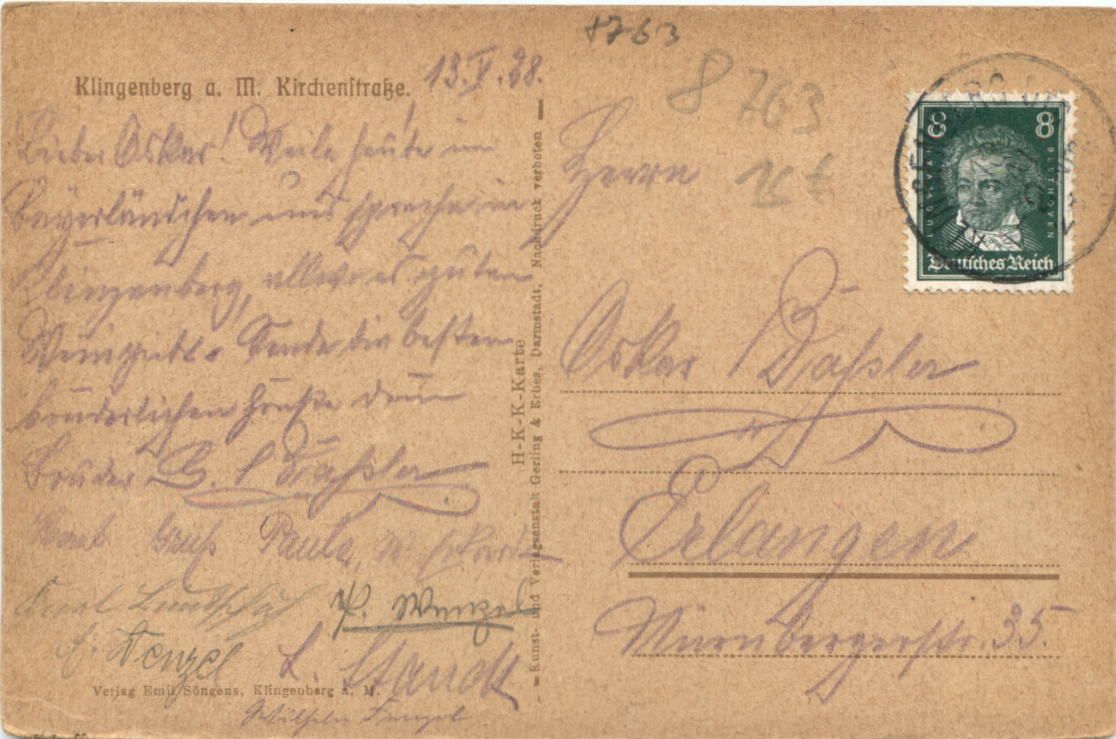 8763
Klingenberg a. M. Kirchenstraße.
13.V.28.
Lieber Oskar! Weile heute im
Bayerländchen und spreche in
Klingenberg, allwo es guten
Wein giebt. Sende die besten
brüderlichen Grüße dein
Bruder G. Daßler
Gruß Paula,
P. Wenzel
Wenzel L. Staudt
Verlag Emil Söngens, Klingenberg a. M.
Wilhelm
H-K-K-Karte
Kunst- und Verlagsanstalt Gerling & Erbes, Darmstadt, Nachdruck verboten
8763
Herrn
Oskar Daßler
Erlangen
Nürnbergerstr. 35.
8 8
LUDWIG VAN BEETHOVEN
Deutsches Reich